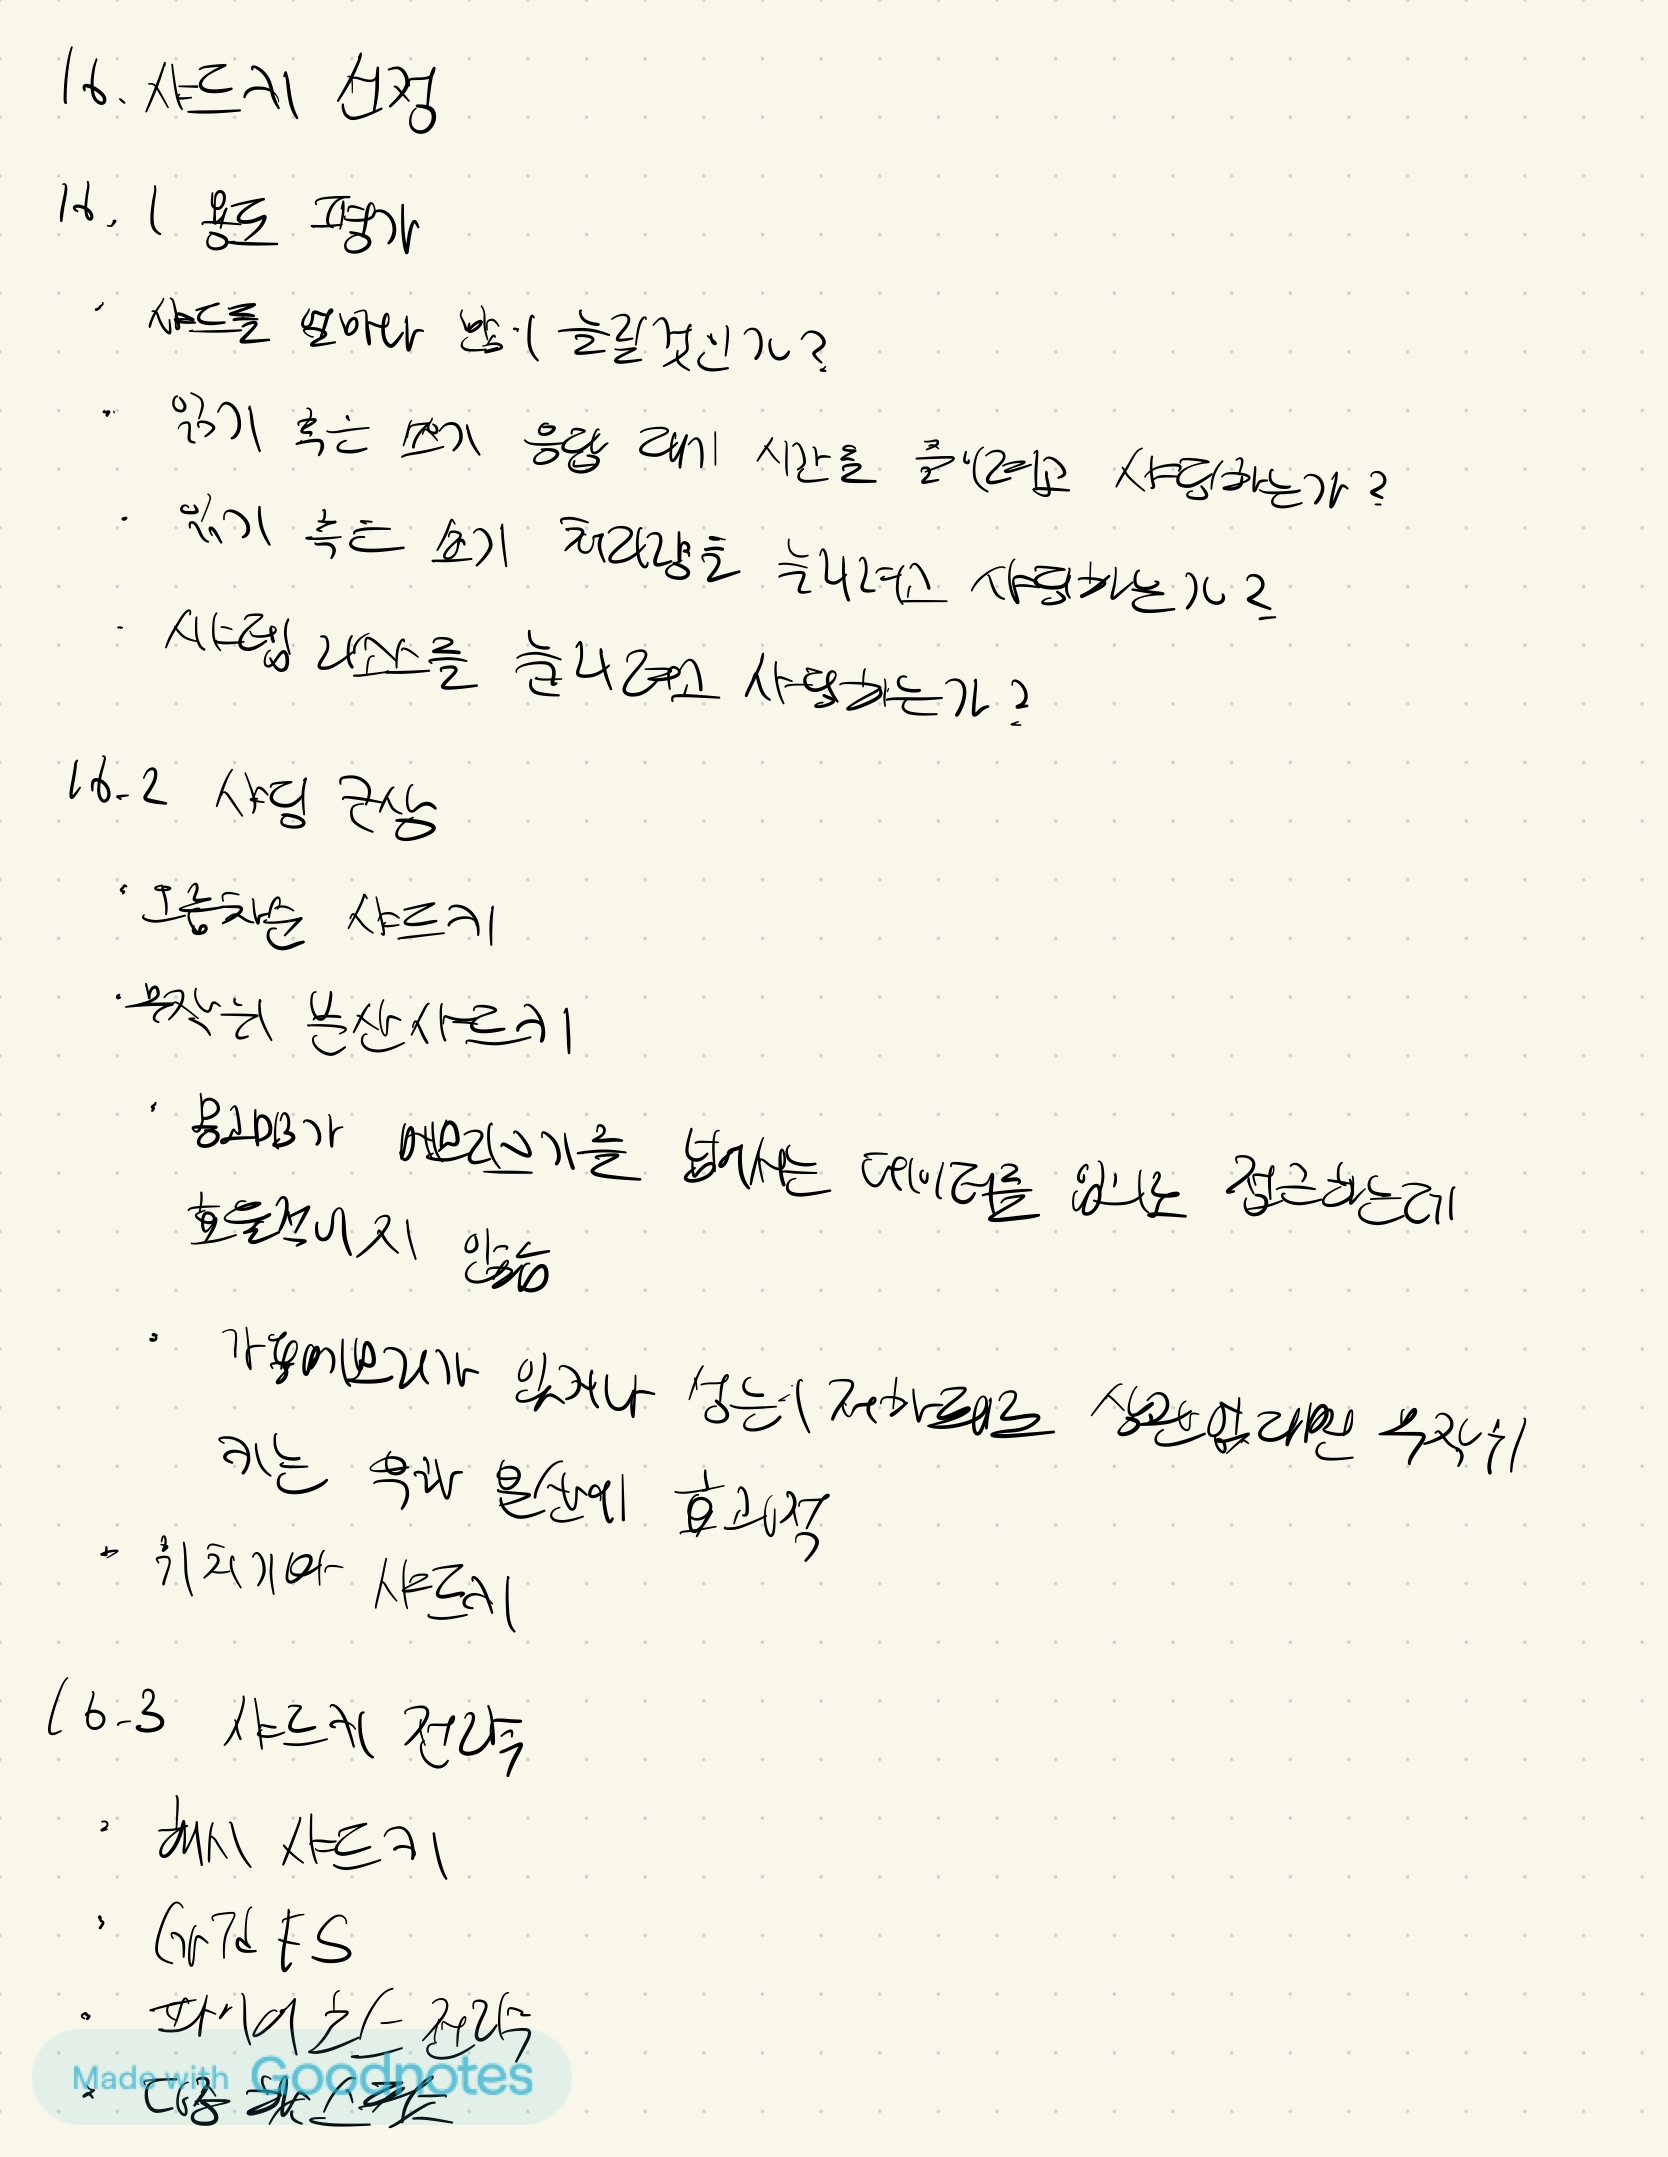 16. 샤드키 선정
16.1 용도 평가
· 샤드를 얼마나 많이 늘릴것인가?
· 읽기 혹은 쓰기 응답 대기 시간을 줄이려고 샤딩하는가?
· 읽기 혹은 쓰기 처리량을 늘리려고 샤딩하는가?
· 시스템 리소스를 늘리려고 샤딩하는가?
16.2 샤딩 구상
· 오름차순 샤드키
· 무작위 분산샤드키
· 몽고DB가 메모리크기를 넘어서는 데이터를 임의로 접근하는데
효율적이지 않음
· 가용메모리가 있거나 성능이 저하돼도 상관없다면 무작위
키는 부하 분산에 효과적
· 위치기반 샤드키
16.3 샤드키 전략
· 해시 샤드키
· FS
· 파이어호스 전략
· 다중 핫스팟
Made with Goodnotes